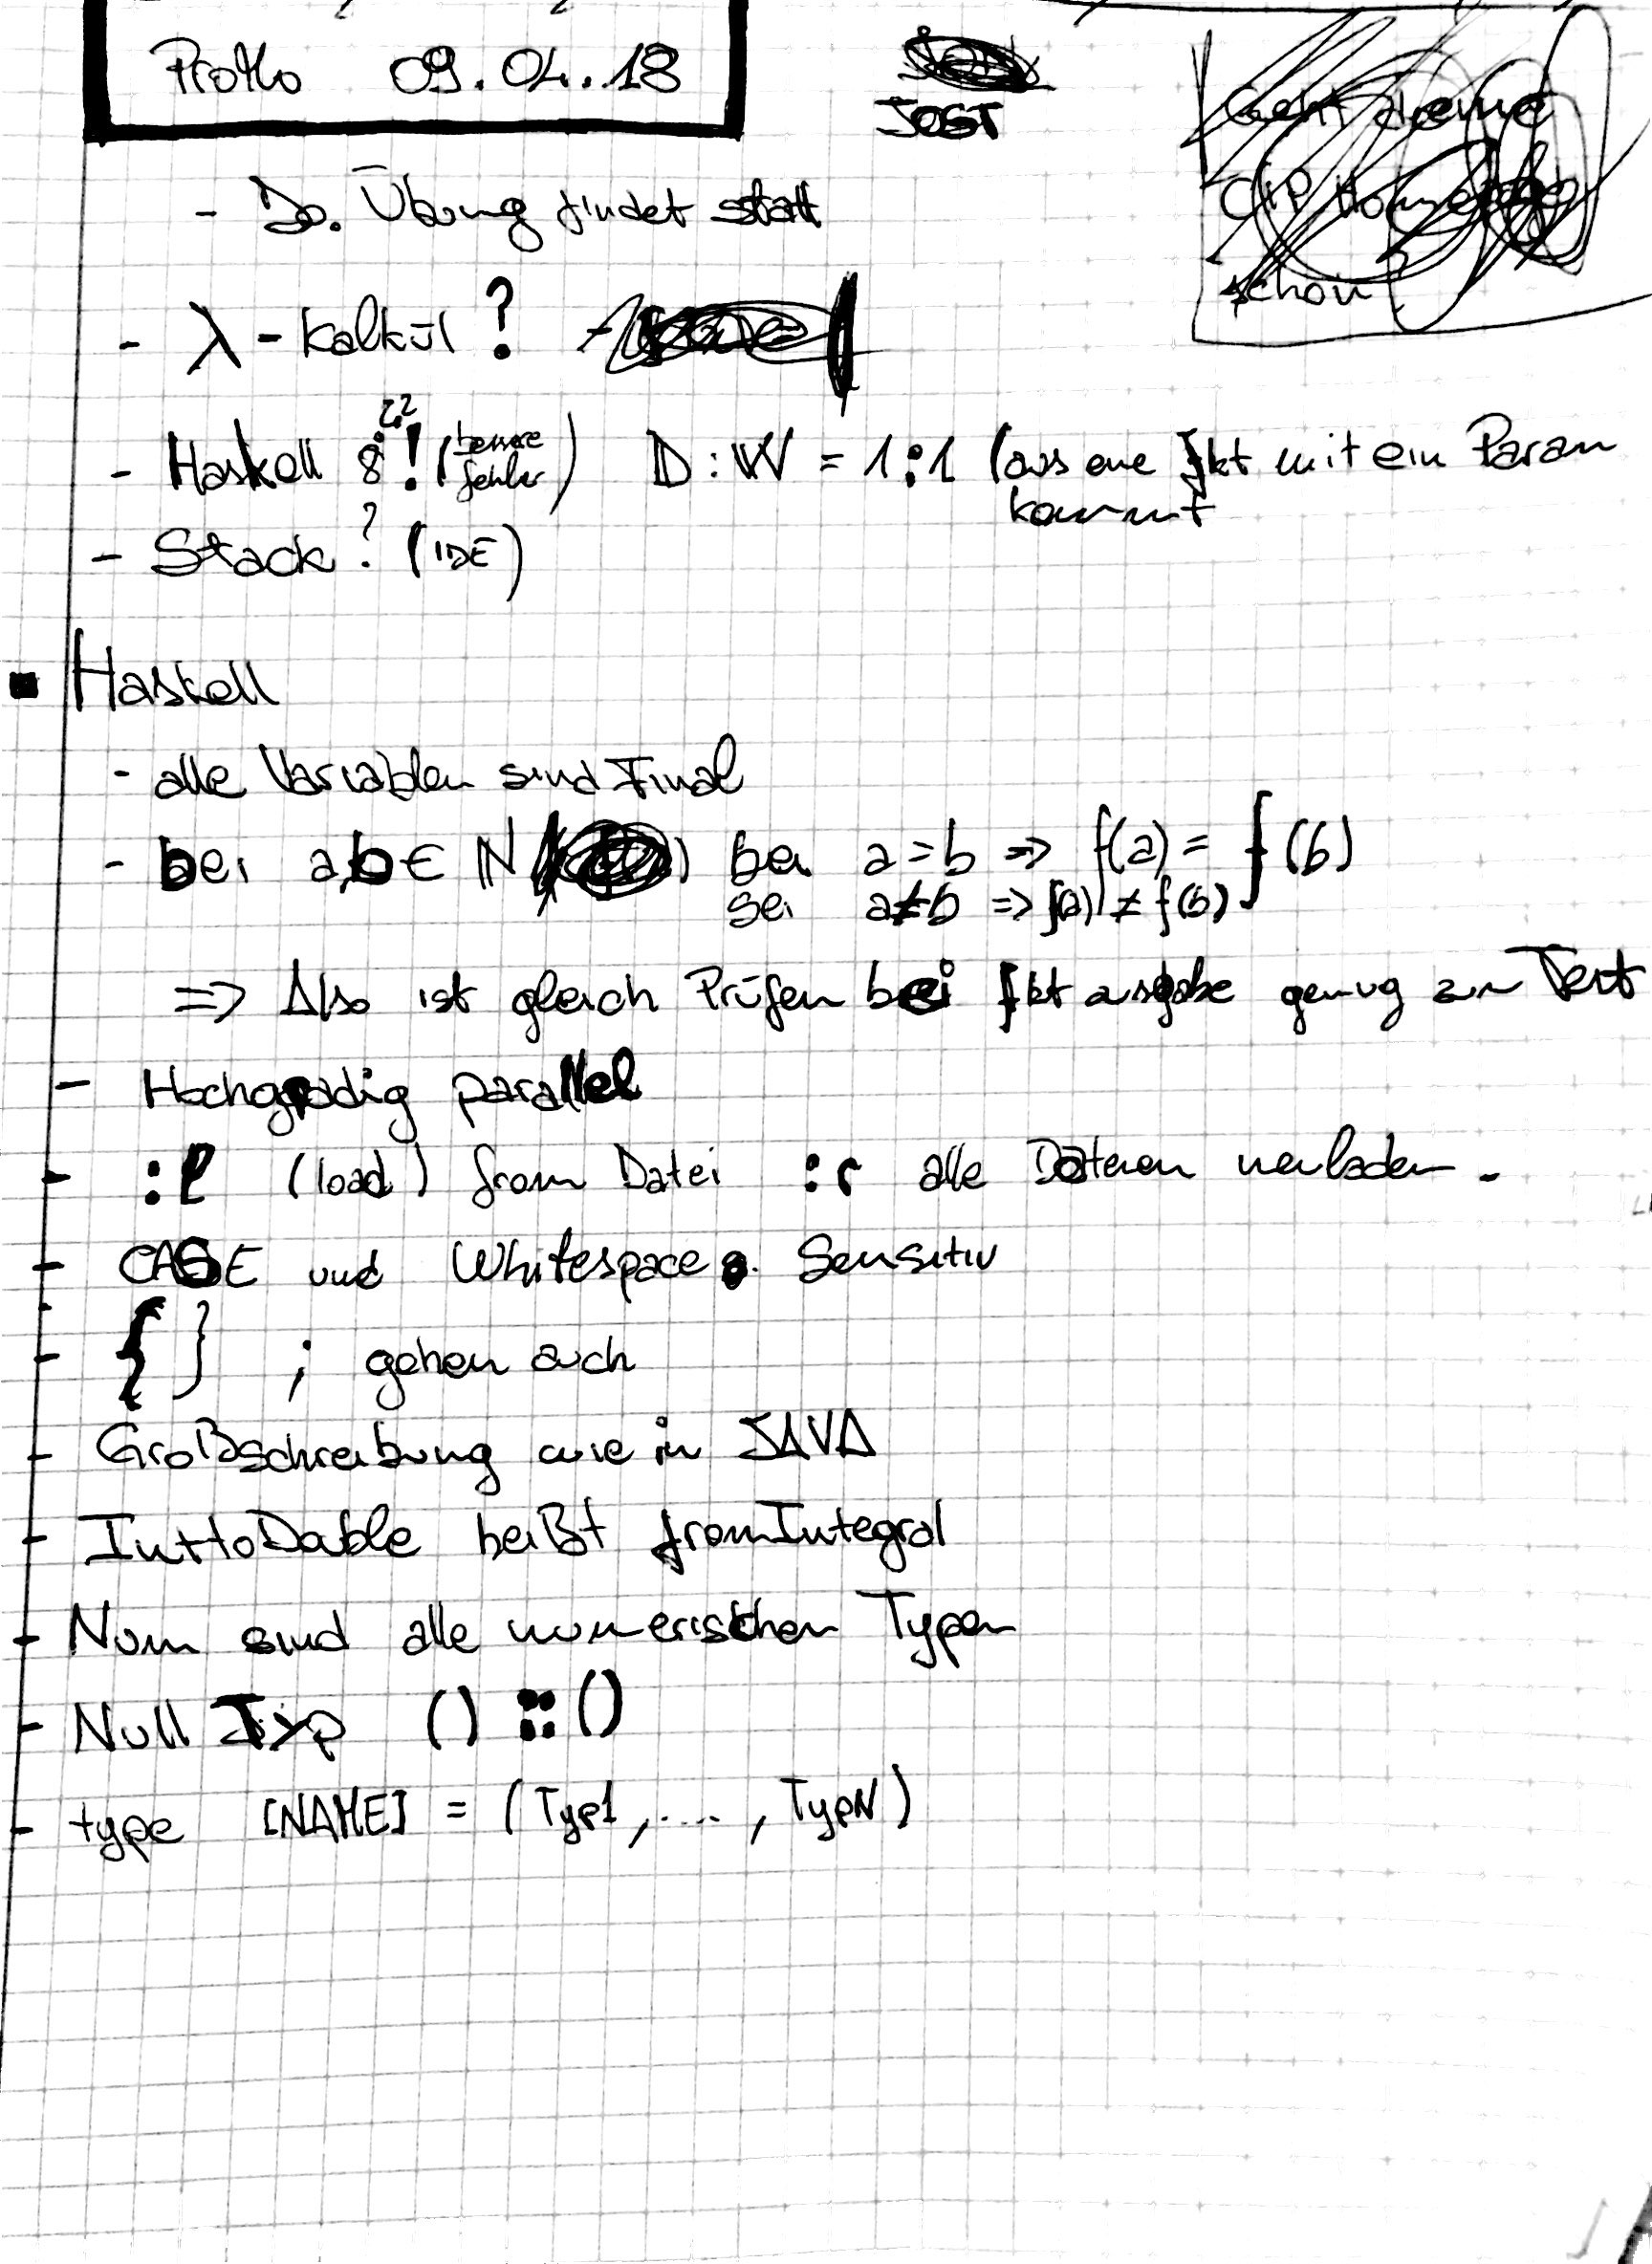 ProMo 09.04.18
JOST
- Do. Übung findet statt
- λ - Kalkül ?
- Haskell 8.2.2 ! (bessere fehler) D : W = 1:1 (aus eine fkt mit ein Param kommt
- Stack ? (IDE)
▪ Haskell
- alle Variablen sind Final
- bei a,b ∈ ℕ bei a = b => f(a) = f(b)
sei a ≠ b => f(a) ≠ f(b)
=> Also ist gleich Prüfen bei fkt ausgabe genug zum Test
- Hochgradig parallel
- :l (load) from Datei :r alle Dateien neuladen.
- CASE und Whitespace Sensitiv
- { } ; gehen auch
- Großschreibung wie in JAVA
- InttoDouble heißt fromIntegral
- Num sind alle numerischen Typen
- Null Typ () :: ()
- type [NAME] = (Typ1, ...., TypN)